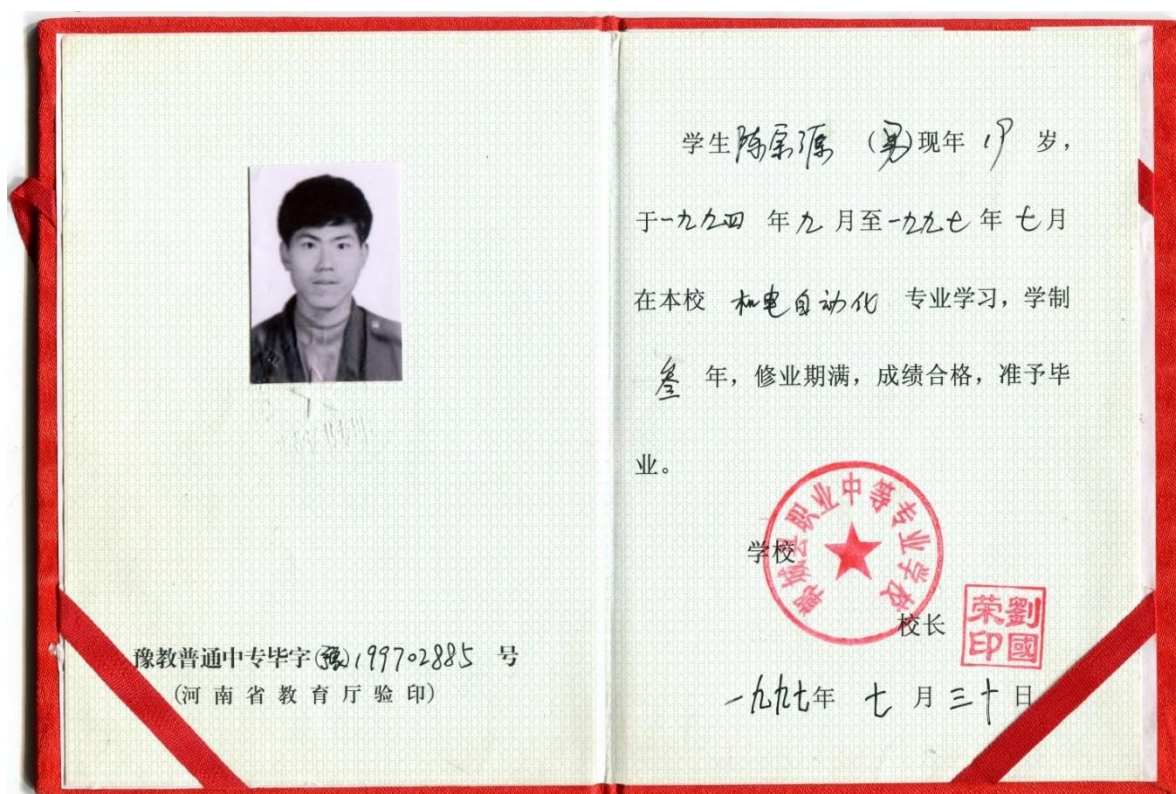 豫教普通中专毕字(豫)199702885 号
(河南省教育厅验印)
学生陈宗源 (男)现年 19 岁，
于一九九四 年 九 月至一九九七 年 七月
在本校 机电自动化 专业学习，学制
叁 年，修业期满，成绩合格，准予毕
业。
郸城县职业中等专业学校
学校
校长
劉國荣印
一九九七年 七 月 三十 日